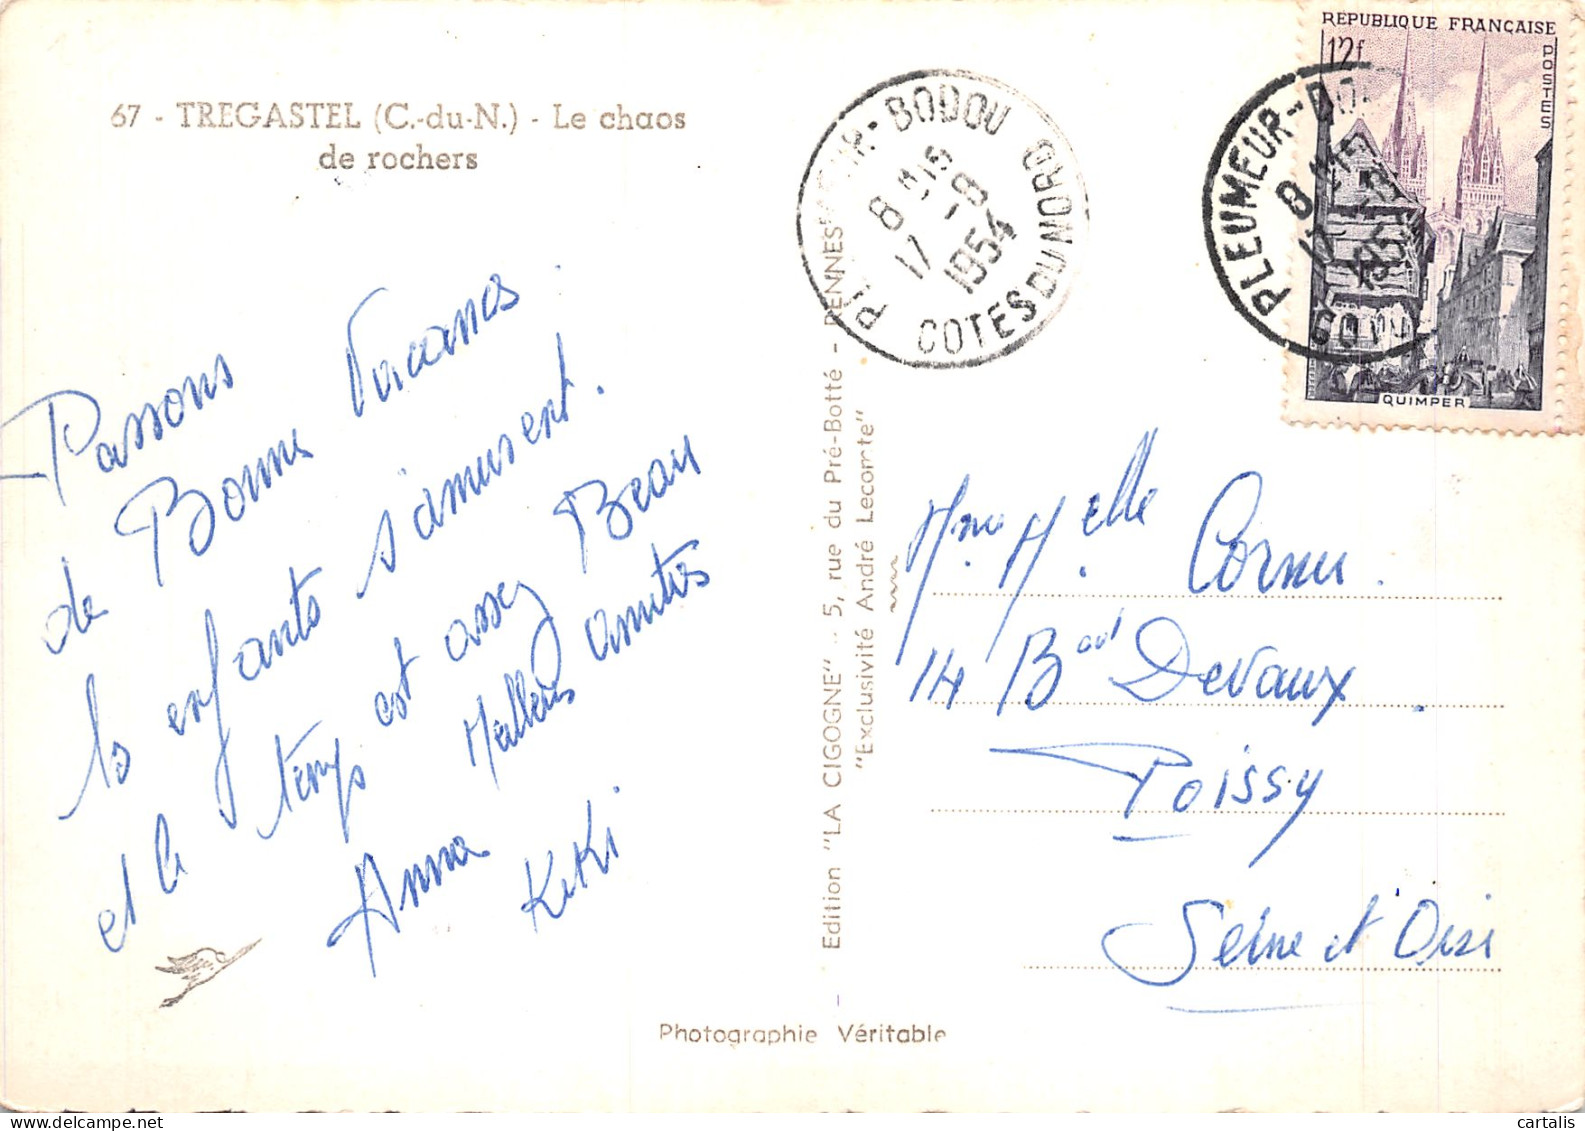 67 - TREGASTEL (C.-du-N.) - Le chaos
de rochers
Passons
de Bonne Vacances
les enfants s'amusent.
et le temps est assez Beau
Meilleurs amitiés
Anna
KiKi
Photographie Véritable
Edition "LA CIGOGNE" - 5, rue du Pré-Botté - RENNES
"Exclusivité André Lecomte"
PLEUMEUR-BODOU
8 H15
17 -8
1954
COTES DU NORD
RÉPUBLIQUE FRANÇAISE
12f
POSTES
QUIMPER
PLEUMEUR-BO
8 H15
17 -8
1954
COTES
Mme Melle Cornu.
14 Bd Devaux.
Poissy
Seine et Oise
cartalis